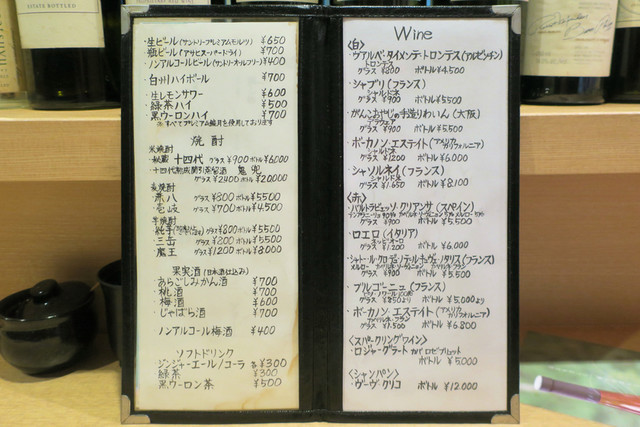 ESTATE BOTTLED
・生ビール(サントリープレミアムモルツ) ¥650
・瓶ビール(アサヒスーパードライ) ¥700
・ノンアルコールビール(サントリーオールフリー) ¥400
・白州ハイボール ¥700
・生レモンサワー ¥600
・緑茶ハイ ¥500
・黒ウーロンハイ ¥700
焼酎
米焼酎
・秘蔵 十四代 グラス¥900 ボトル¥6000
・十四代 鬼兜
グラス¥2400 ボトル¥20000
麦焼酎
・兼八 グラス¥800 ボトル¥5500
・壱岐 グラス¥700 ボトル¥4,500
芋焼酎
グラス¥800 ボトル¥5500
・三岳 グラス¥800 ボトル¥5500
・魔王 グラス¥1200 ボトル¥8000
果実酒(日本酒仕込み)
・あらごしみかん酒 ¥700
・桃酒 ¥700
・梅酒 ¥600
・じゃばら酒 ¥700
・ノンアルコール梅酒 ¥400
ソフトドリンク
・ジンジャーエール/コーラ 各¥300
・緑茶 ¥300
・黒ウーロン茶 ¥500
Wine
〈白〉
・ヴァルパ・タイメンテ・トロンテス(アルゼンチン)
トロンテス
グラス ¥800 ボトル¥4,500
・シャブリ(フランス)
シャルドネ
グラス ¥900 ボトル¥5500
・がんこおやじの手造りわいん(大阪)
デラウェア
グラス ¥900 ボトル¥5,500
・ボーカノン・エステイト(アメリカ カリフォルニア)
シャルドネ
グラス ¥1200 ボトル ¥6,000
・シャソルネイ(フランス)
シャルドネ
グラス ¥1,650 ボトル ¥8,100
〈赤〉
・バルトラビエッソ・クリアンサ(スペイン)
グラス ¥900 ボトル ¥5,000
・ロエロ(イタリア)
ネッビオーロ
グラス ¥1,200 ボトル ¥6,000
(フランス)
グラス ¥900 ボトル ¥5,500
・ブルゴーニュ(フランス)
グラス ¥850より ボトル ¥5,000より
・ボーカノン エステイト(アメリカ カリフォルニア)
グラス ¥1,500 ボトル ¥6,800
〈スパークリングワイン〉
・ロジャーグラート カバ ロゼブリュット
ボトル ¥5,000
〈シャンパン〉
・ヴーヴ・クリコ ボトル ¥12,000